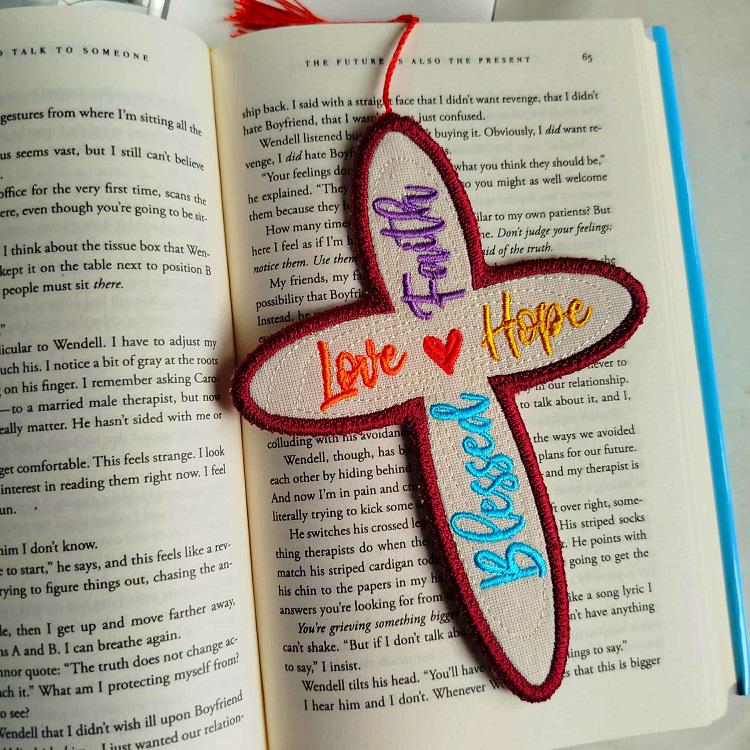 TALK TO SOMEONE
gestures from where I'm sitting all the
us seems vast, but I still can't believe
office for the very first time, scans the
ere, even though you're going to be sit-
I think about the tissue box that Wen-
kept it on the table next to position B
people must sit there.
icular to Wendell. I have to adjust my
uch his. I notice a bit of gray at the roots
on his finger. I remember asking Caro-
—to a married male therapist, but now
eally matter. He hasn't sided with me or
get comfortable. This feels strange. I look
interest in reading them right now. I feel
un.
him I don't know.
e to start," he says, and this feels like a rev-
rying to figure things out, chasing the an-
le, then I get up and move farther away,
ns A and B. I can breathe again.
nnor quote: "The truth does not change ac-
ch it." What am I protecting myself from?
o see?
Wendell that I didn't wish ill upon Boyfriend
I just wanted our relation-
THE FUTURE IS ALSO THE PRESENT 65
ship back. I said with a straight face that I didn't want revenge, that I didn't
hate Boyfriend, that I was just confused.
Wendell listened buying it. Obviously, I did want re-
venge, I did hate Boyf
"Your feelings do what you think they should be,"
he explained. "They so you might as well welcome
them because they h
How many time ilar to my own patients? But
here I feel as if I'm h me. Don't judge your feelings;
notice them. Use them aid of the truth.
My friends, my fa
possibility that Boyfri she
Instead, he
never to
in our relationship.
to talk about it, and I,
colluding with his avoidan
Wendell, though, has b the ways we avoided
each other by hiding behind plans for our future.
And now I'm in pain and cr and my therapist is
literally trying to kick some
He switches his crossed le t over right, some-
thing therapists do when the His striped socks
match his striped cardigan tod He points with
his chin to the papers in my ha going to get the
answers you're looking for from
You're grieving something bigger like a song lyric I
can't shake. "But if I don't talk abo n't have anything
to say," I insist.
Wendell tilts his head. "You'll have things to say."
I hear him and I don't. Whenever es that this is bigger
Faith
Love Hope
Blessed